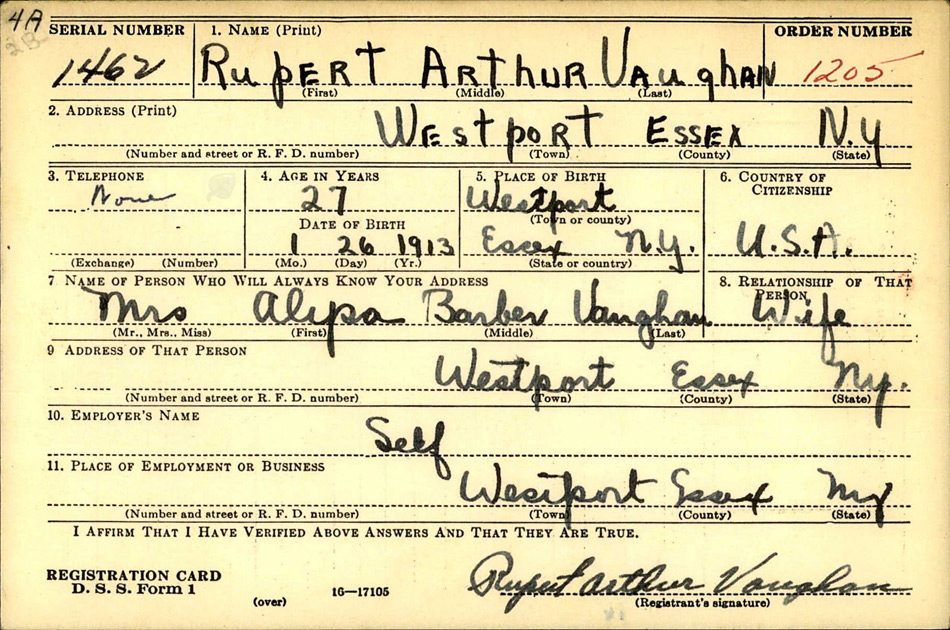 4A
SERIAL NUMBER 1. NAME (Print) ORDER NUMBER
1462 RUPERT ARTHUR VAUGHAN 1205
(First) (Middle) (Last)
2. ADDRESS (Print)
WESTPORT ESSEX N.Y
(Number and street or R. F. D. number) (Town) (County) (State)
3. TELEPHONE 4. AGE IN YEARS 5. PLACE OF BIRTH 6. COUNTRY OF CITIZENSHIP
None 27 Westport
(Town or county)
DATE OF BIRTH
1 26 1913 Essex N.Y. U.S.A.
(Exchange) (Number) (Mo.) (Day) (Yr.) (State or country)
7 NAME OF PERSON WHO WILL ALWAYS KNOW YOUR ADDRESS 8. RELATIONSHIP OF THAT PERSON
Mrs Barber Vaughan Wife
(Mr., Mrs., Miss) (First) (Middle) (Last)
9 ADDRESS OF THAT PERSON
Westport Essex Ny.
(Number and street or R. F. D. number) (Town) (County) (State)
10. EMPLOYER'S NAME
Self
11. PLACE OF EMPLOYMENT OR BUSINESS
Westport Essex Ny
(Number and street or R. F. D. number) (Town) (County) (State)
I AFFIRM THAT I HAVE VERIFIED ABOVE ANSWERS AND THAT THEY ARE TRUE.
REGISTRATION CARD
D. S. S. Form 1
(over) 16—17105
Rupert Arthur Vaughan
(Registrant's signature)